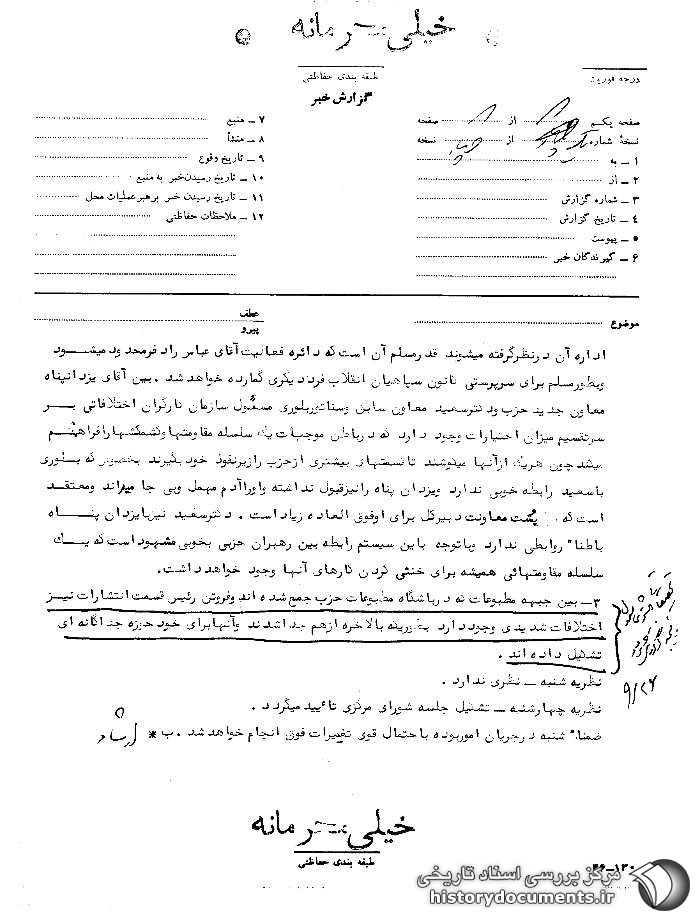 خیلی محرمانه
طبقه بندی حفاظتی
درجه فوریت
گزارش خبر
صفحه یکم از صفحه
نسخهٔ شماره از نسخه
۱ ـ به
۲ ـ از
۳ ـ شماره گزارش
۴ ـ تاریخ گزارش
۵ ـ پیوست
۶ ـ گیرندگان خبر
۷ ـ منبع
۸ ـ منشأ
۹ ـ تاریخ وقوع
۱۰ ـ تاریخ رسیدن خبر به منبع
۱۱ ـ تاریخ رسیدن خبر برهبر عملیات محل
۱۲ ـ ملاحظات حفاظتی
موضوع
عطف
پیرو
اداره آن درنظرگرفته میشوند قدرمسلم آن است که دائره فعالیت آقای عباس رادفرمحدود میشود
وبطورمسلم برای سرپرستی کانون سپاهیان انقلاب فرد دیگری گمارده خواهد شد . بین آقای یزدانپناه
معاون جدید حزب ودکترسعید معاون سابق وسناتوربلوری مسئول سازمان کارگران اختلافاتی بر
سرتقسیم میزان اختیارات وجود دارد که درباطن موجبات یک سلسله مقاومتهاوکشمکشهارافراهم
میکند چون هریک ازآنها میکوشند تاقسمتهای بیشتری ازحزب رازیرنفوذ خود بگیرند بخصوص که بلوری
باسعید رابطه خوبی ندارد ویزدان پناه رانیزقبول نداشته واوراآدم مهمل وبی جا میداند ومعتقد
است که پست معاونت دبیرکل برای اوفوق العاده زیاد است . دکترسعید نیزبایزدان پناه
باطنا" روابطی ندارد وباتوجه باین سیستم رابطه بین رهبران حزبی بخوبی مشهود است که یک
سلسله مقاومتهائی همیشه برای خنثی کردن کارهای آنها وجود خواهد داشت.
۳ـ بین جبهه مطبوعات که درباشگاه مطبوعات حزب جمع شده اند وفروتن رئیس قسمت انتشارات نیز
اختلافات شدیدی وجود دارد بطوریکه بالاخره ازهم جداشدند وآنهابرای خود حوزه جداگانه ای
تشکیل داده اند .
نظریه شنبه ـ نظری ندارد .
نظریه چهارشنبه ـ تشکیل جلسه شورای مرکزی تائید میگردد .
ضمنا" شنبه درجریان اموربوده باحتمال قوی تغییرات فوق انجام خواهد شد . ب *
۹/۲۶
خیلی محرمانه
طبقه بندی حفاظتی
۳۶-۱۳۰
مرکز بررسی اسناد تاریخی
historydocuments.ir